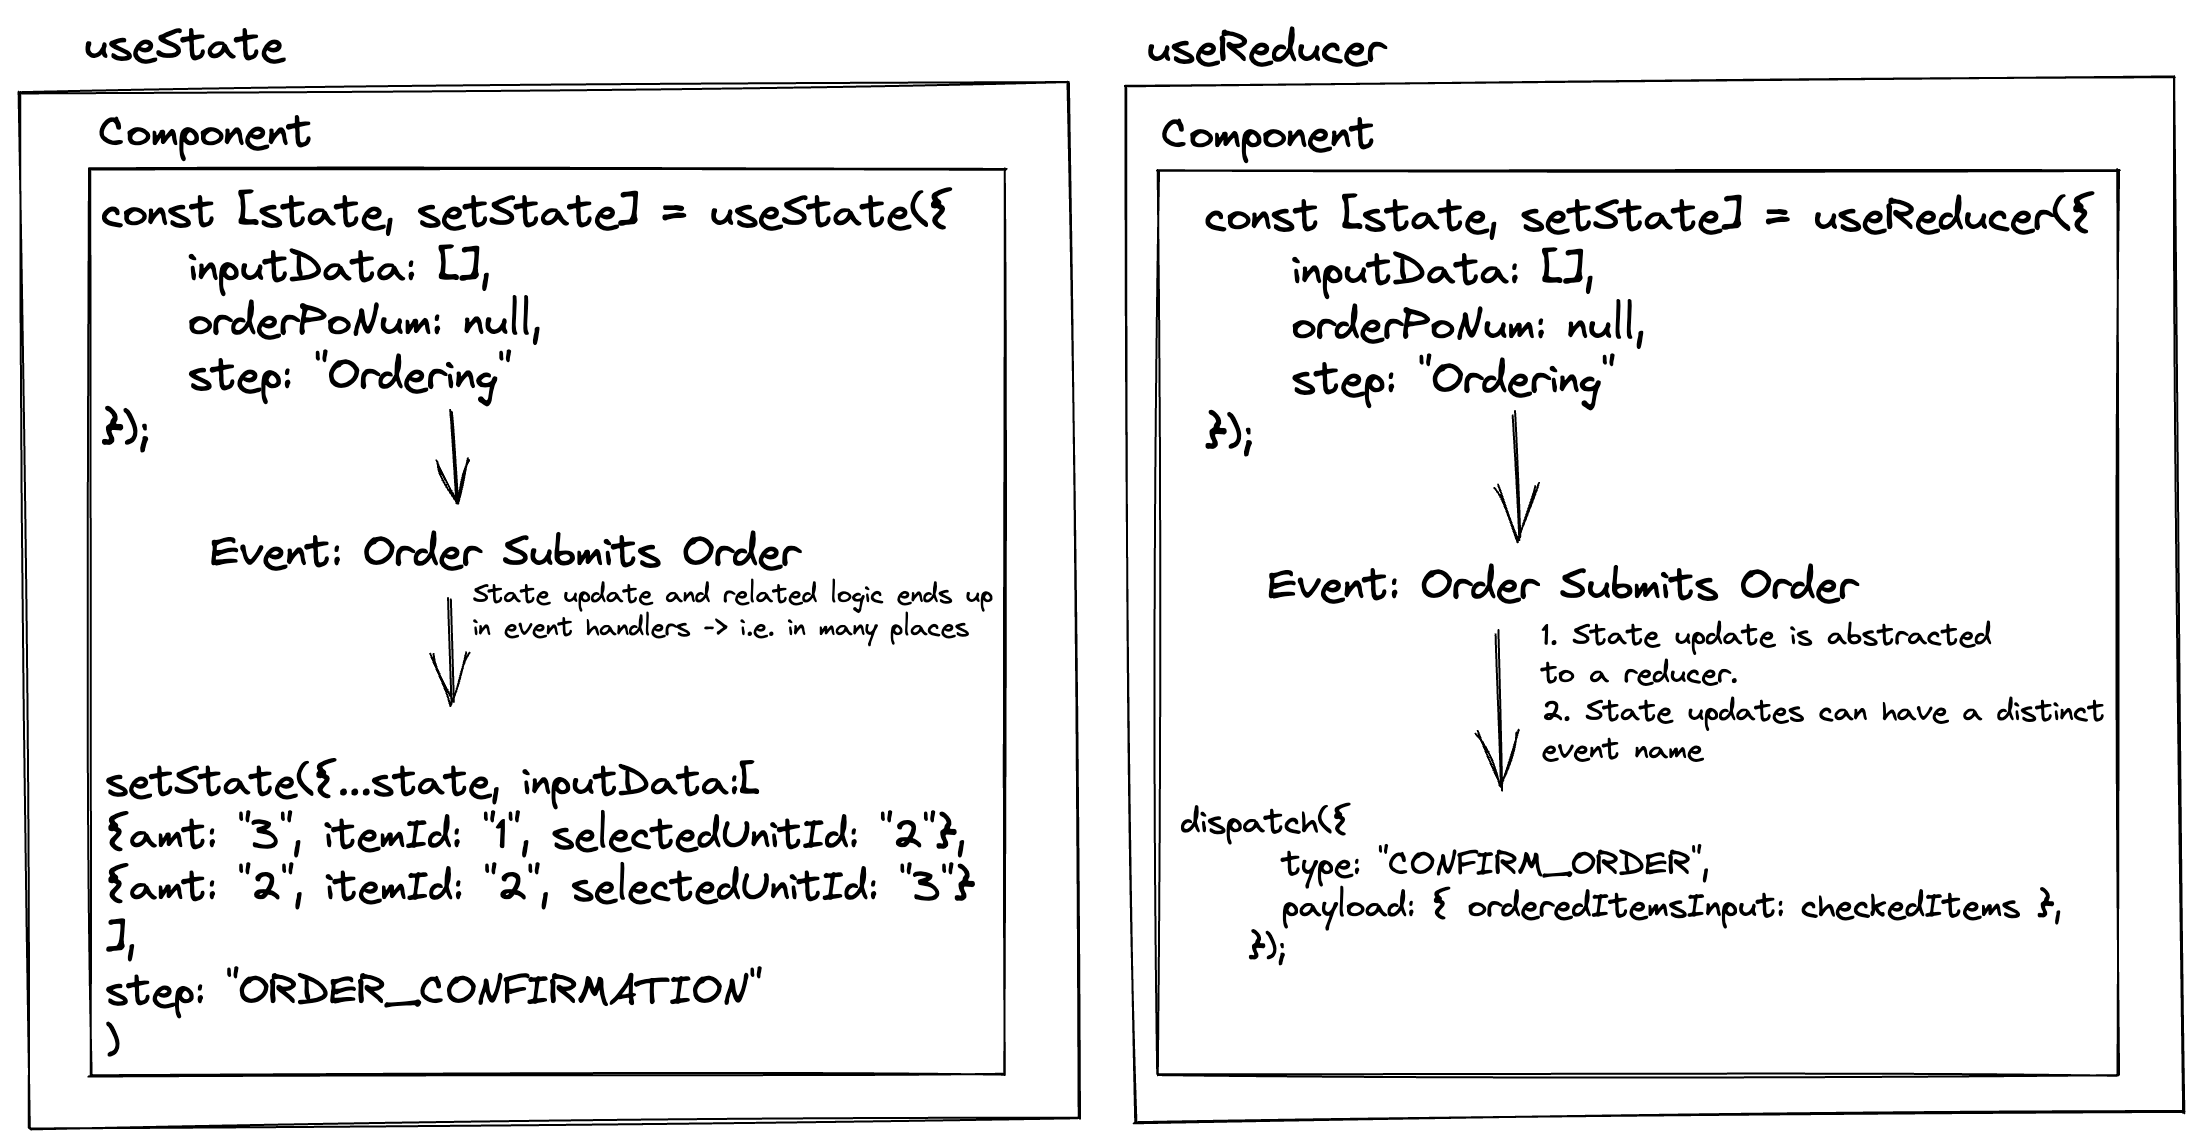 useState
Component
const [state, setState] = useState({
inputData: [],
orderPoNum: null,
step: "Ordering"
});
Event: Order Submits Order
State update and related logic ends up
in event handlers -> i.e. in many places
setState({...state, inputData:[
{amt: "3", itemId: "1", selectedUnitId: "2"},
{amt: "2", itemId: "2", selectedUnitId: "3"}
],
step: "ORDER_CONFIRMATION"
)
useReducer
Component
const [state, setState] = useReducer({
inputData: [],
orderPoNum: null,
step: "Ordering"
});
Event: Order Submits Order
1. State update is abstracted
to a reducer.
2. State updates can have a distinct
event name
dispatch({
type: "CONFIRM_ORDER",
payload: { orderedItemsInput: checkedItems },
});